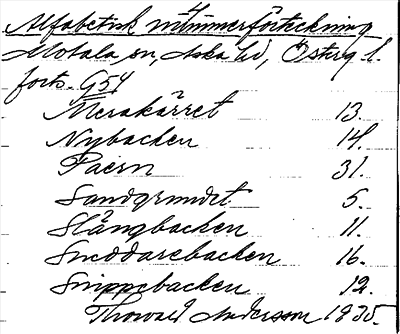 Alfabetisk nummerförteckning
Motala sn, Aska hd, Österg. l.
forts. G54
Merakärret 13.
Nybacken 14.
31.
Sandgrundet 5.
Slångbacken 11.
Snoddarebacken 16.
Snippebacken 12.
Thorwald Andersson 1935.